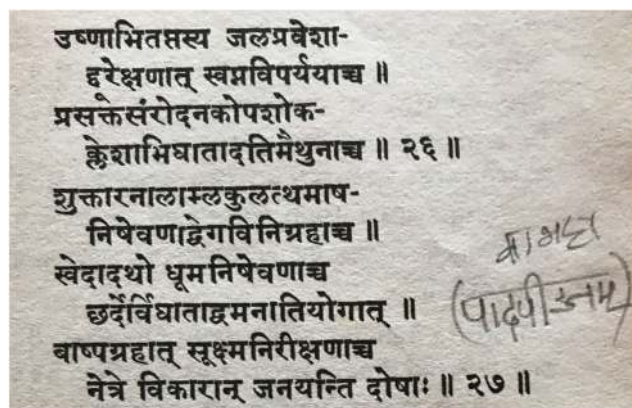 उष्णाभितप्तस्य जलप्रवेशा-
द्दूरेक्षणात् स्वप्नविपर्ययाच्च ॥
प्रसक्तसंरोदनकोपशोक-
क्लेशाभिघातादतिमैथुनाच्च ॥ २६ ॥
शुक्तारनालाम्लकुलत्थमाष-
निषेवणाद्वेगविनिग्रहाच्च ॥
स्वेदादथो धूमनिषेवणाच्च
छर्देर्विघाताद्वमनातियोगात् ॥
बाष्पग्रहात् सूक्ष्मनिरीक्षणाच्च
नेत्रे विकारान् जनयन्ति दोषाः ॥ २७ ॥